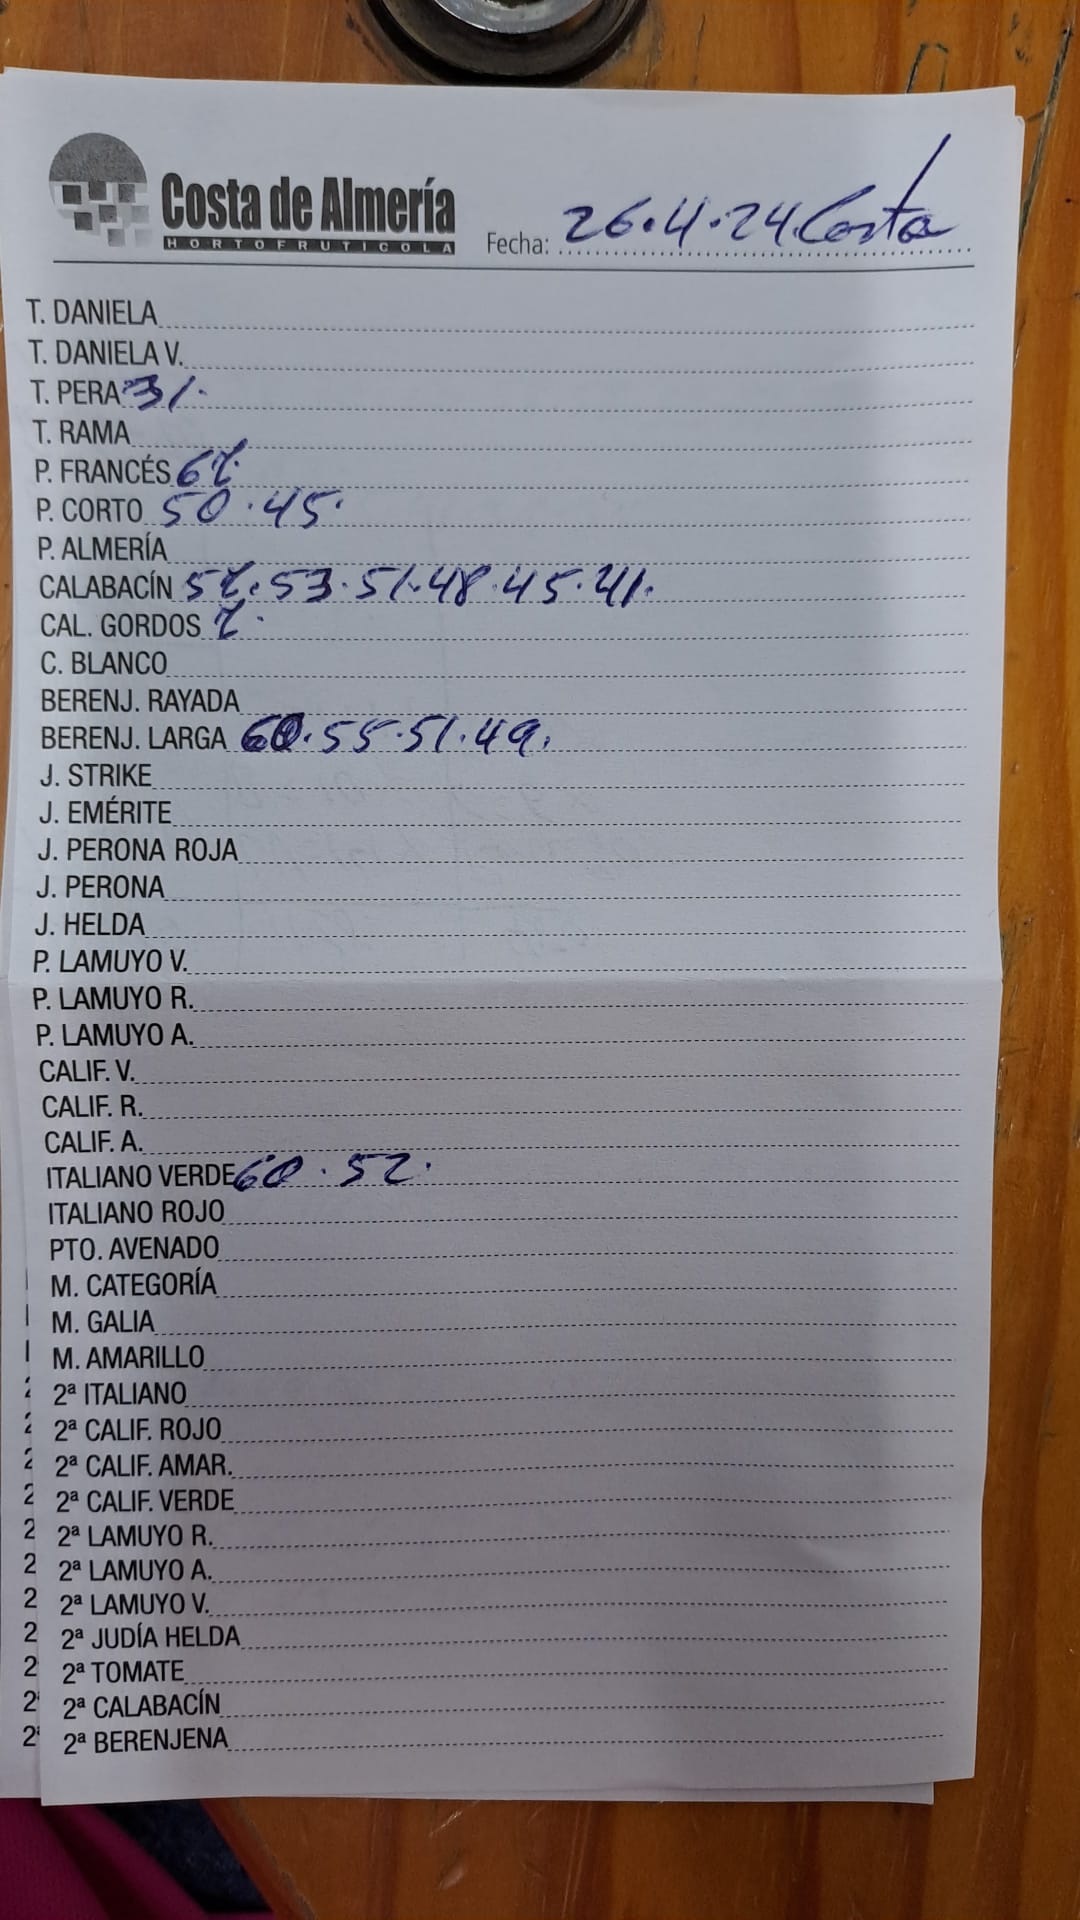 Costa de Almería
HORTOFRUTICOLA
Fecha: 26.4.24 Costa
T. DANIELA
T. DANIELA V.
T. PERA 31.
T. RAMA
P. FRANCÉS
P. CORTO 50.45.
P. ALMERÍA
CALABACÍN 53.51.48.45.41.
CAL. GORDOS
C. BLANCO
BERENJ. RAYADA
BERENJ. LARGA 60.55.51.49.
J. STRIKE
J. EMÉRITE
J. PERONA ROJA
J. PERONA
J. HELDA
P. LAMUYO V.
P. LAMUYO R.
P. LAMUYO A.
CALIF. V.
CALIF. R.
CALIF. A.
ITALIANO VERDE 60.52.
ITALIANO ROJO
PTO. AVENADO
M. CATEGORÍA
M. GALIA
M. AMARILLO
2ª ITALIANO
2ª CALIF. ROJO
2ª CALIF. AMAR.
2ª CALIF. VERDE
2ª LAMUYO R.
2ª LAMUYO A.
2ª LAMUYO V.
2ª JUDÍA HELDA
2ª TOMATE
2ª CALABACÍN
2ª BERENJENA